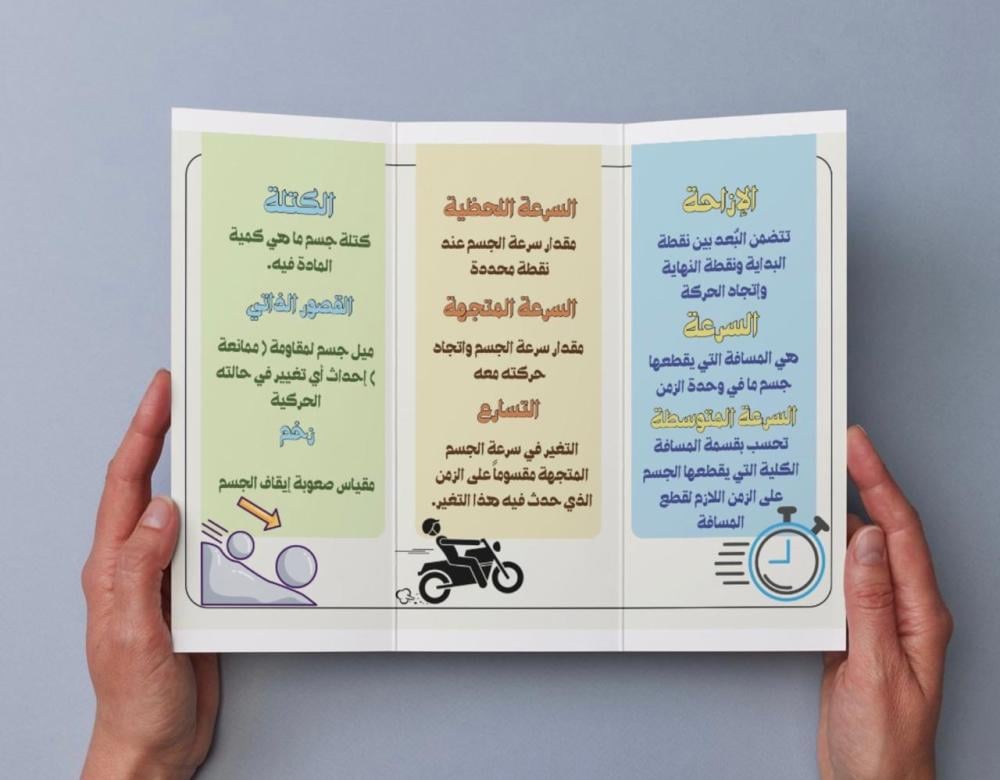 الإزاحة
تتضمن البُعد بين نقطة
البداية ونقطة النهاية
وإتجاه الحركة
السرعة
هي المسافة التي يقطعها
جسم ما في وحدة الزمن
السرعة المتوسطة
تحسب بقسمة المسافة
الكلية التي يقطعها الجسم
على الزمن اللازم لقطع
المسافة
السرعة اللحظية
مقدار سرعة الجسم عند
نقطة محددة
السرعة المتجهة
مقدار سرعة الجسم واتجاه
حركته معه
التسارع
التغير في سرعة الجسم
المتجهة مقسوماً على الزمن
الذي حدث فيه هذا التغير.
الكتلة
كتلة جسم ما هي كمية
المادة فيه.
القصور الذاتي
ميل جسم لمقاومة ( ممانعة
) إحداث أي تغيير في حالته
الحركية
زخم
مقياس صعوبة إيقاف الجسم